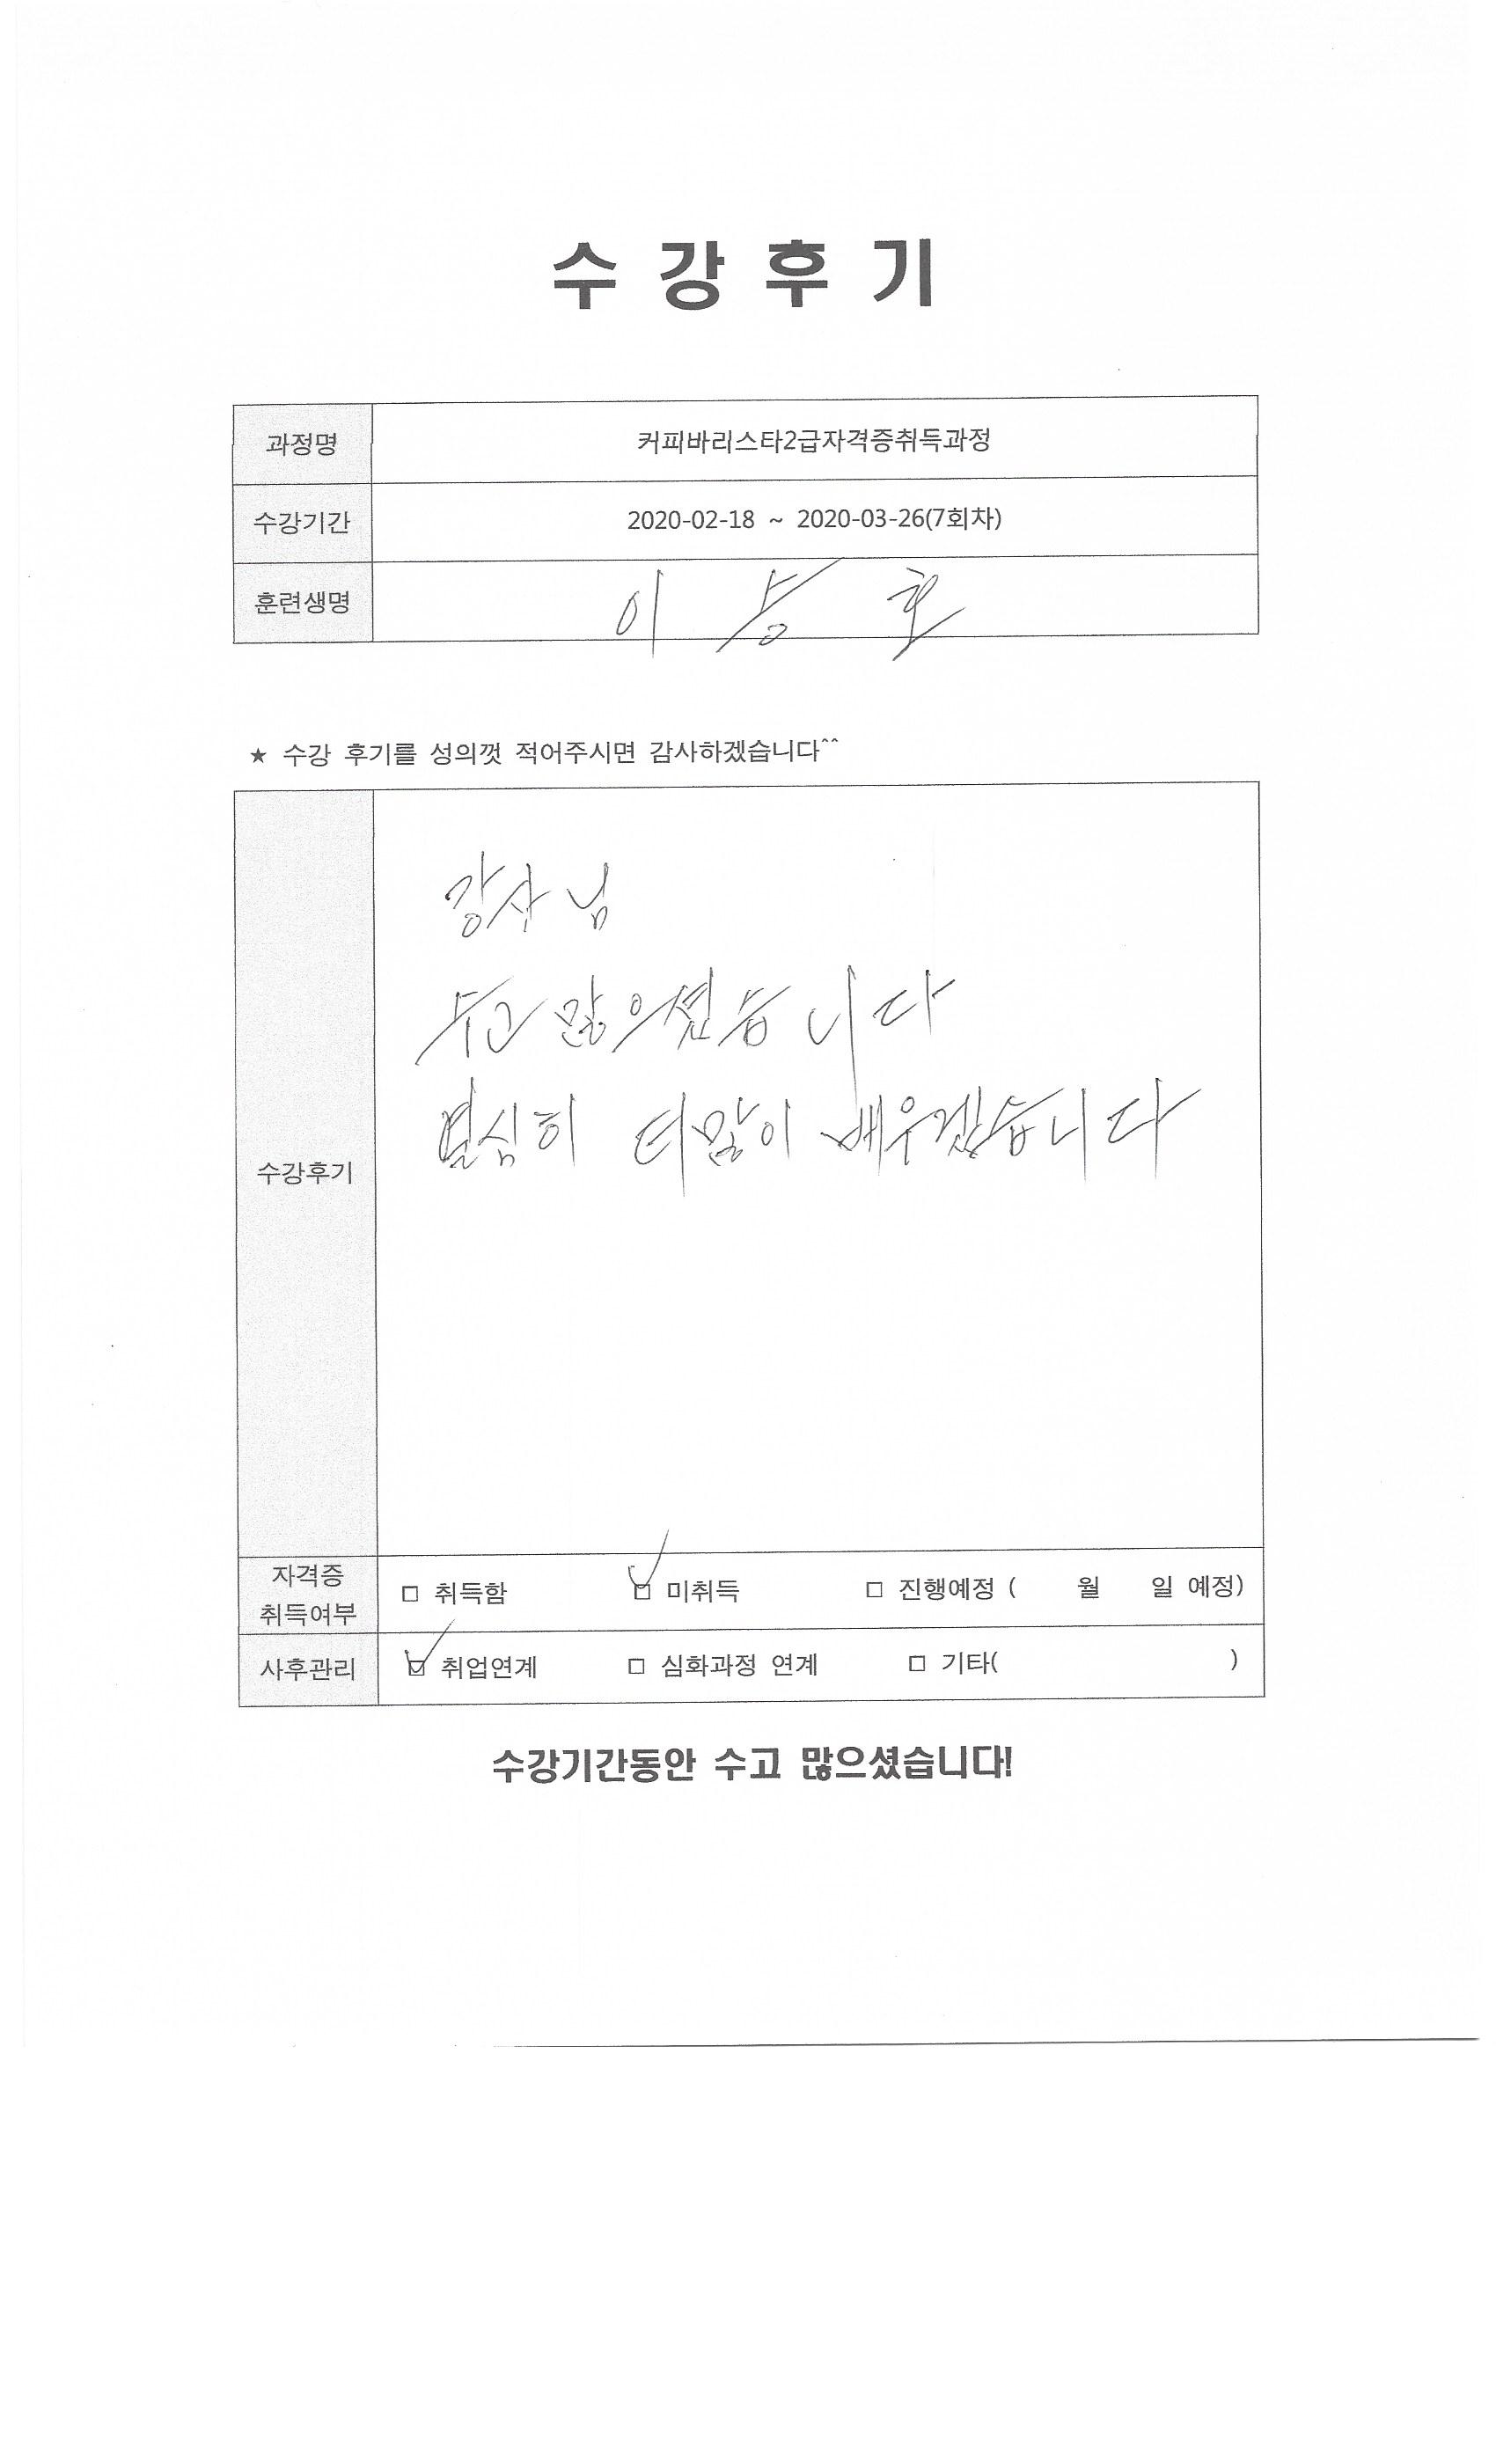 수 강 후 기
과정명 커피바리스타2급자격증취득과정
수강기간 2020-02-18 ~ 2020-03-26(7회차)
훈련생명 이 승 호
★ 수강 후기를 성의껏 적어주시면 감사하겠습니다^^
강사님
수고 많으셨습니다
열심히 더많이 배우겠습니다
수강후기
자격증
취득여부 □ 취득함 ☑ 미취득 □ 진행예정 ( 월 일 예정)
사후관리 ☑ 취업연계 □ 심화과정 연계 □ 기타( )
수강기간동안 수고 많으셨습니다!